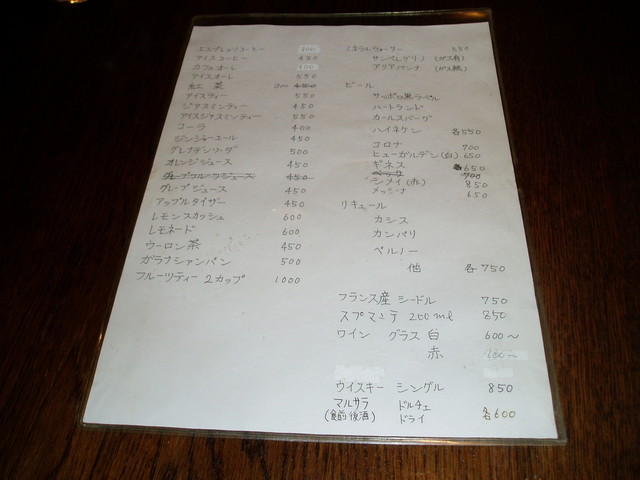 エスプレッソコーヒー 400
アイスコーヒー 450
カフェオーレ 400
アイスオーレ 550
紅茶 450
アイスティー 550
ジャスミンティー 450
アイスジャスミンティー 550
コーラ 400
ジンジャーエール 450
グレナデンソーダ 500
オレンジジュース 450
グレープフルーツジュース 450
グレープジュース 450
アップルタイザー 450
レモンスカッシュ 600
レモネード 600
ウーロン茶 450
ガラナシャンパン 500
フルーツティー 2カップ 1000
ミネラルウォーター 550
サンペレグリノ (ガス有)
アクアパンナ (ガス無)
ビール
サッポロ黒ラベル
ハートランド
カールスバーグ
ハイネケン 各550
コロナ 700
ヒューガルデン(白) 650
ギネス 650
ベックス 700
シメイ(赤) 850
メッシーナ 650
リキュール
カシス
カンパリ
ペルノー
他 各750
フランス産 シードル 750
スプマンテ 200ml 850
ワイン グラス 白 600〜
赤
ウイスキー シングル 850
マルサラ ドルチェ
(食前後酒) ドライ 各600